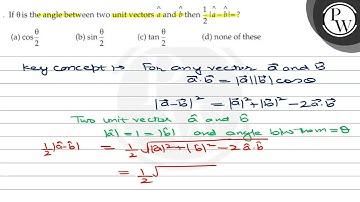 . If θ is the angle between two unit vectors â and b̂ then 1/2 |â – b̂| = ?
(a) cos θ/2 (b) sin θ/2 (c) tan θ/2 (d) none of these
key concept :- For any vector a⃗ and b⃗
a⃗·b⃗ = |a⃗||b⃗| cosθ
|a⃗-b⃗|² = |a⃗|²+|b⃗|²-2a⃗·b⃗
Two unit vector â and b̂
|â| = 1 = |b̂| and angle b/w them = θ
1/2|â-b̂| = 1/2 √|â|²+|b̂|²-2â·b̂
= 1/2 √